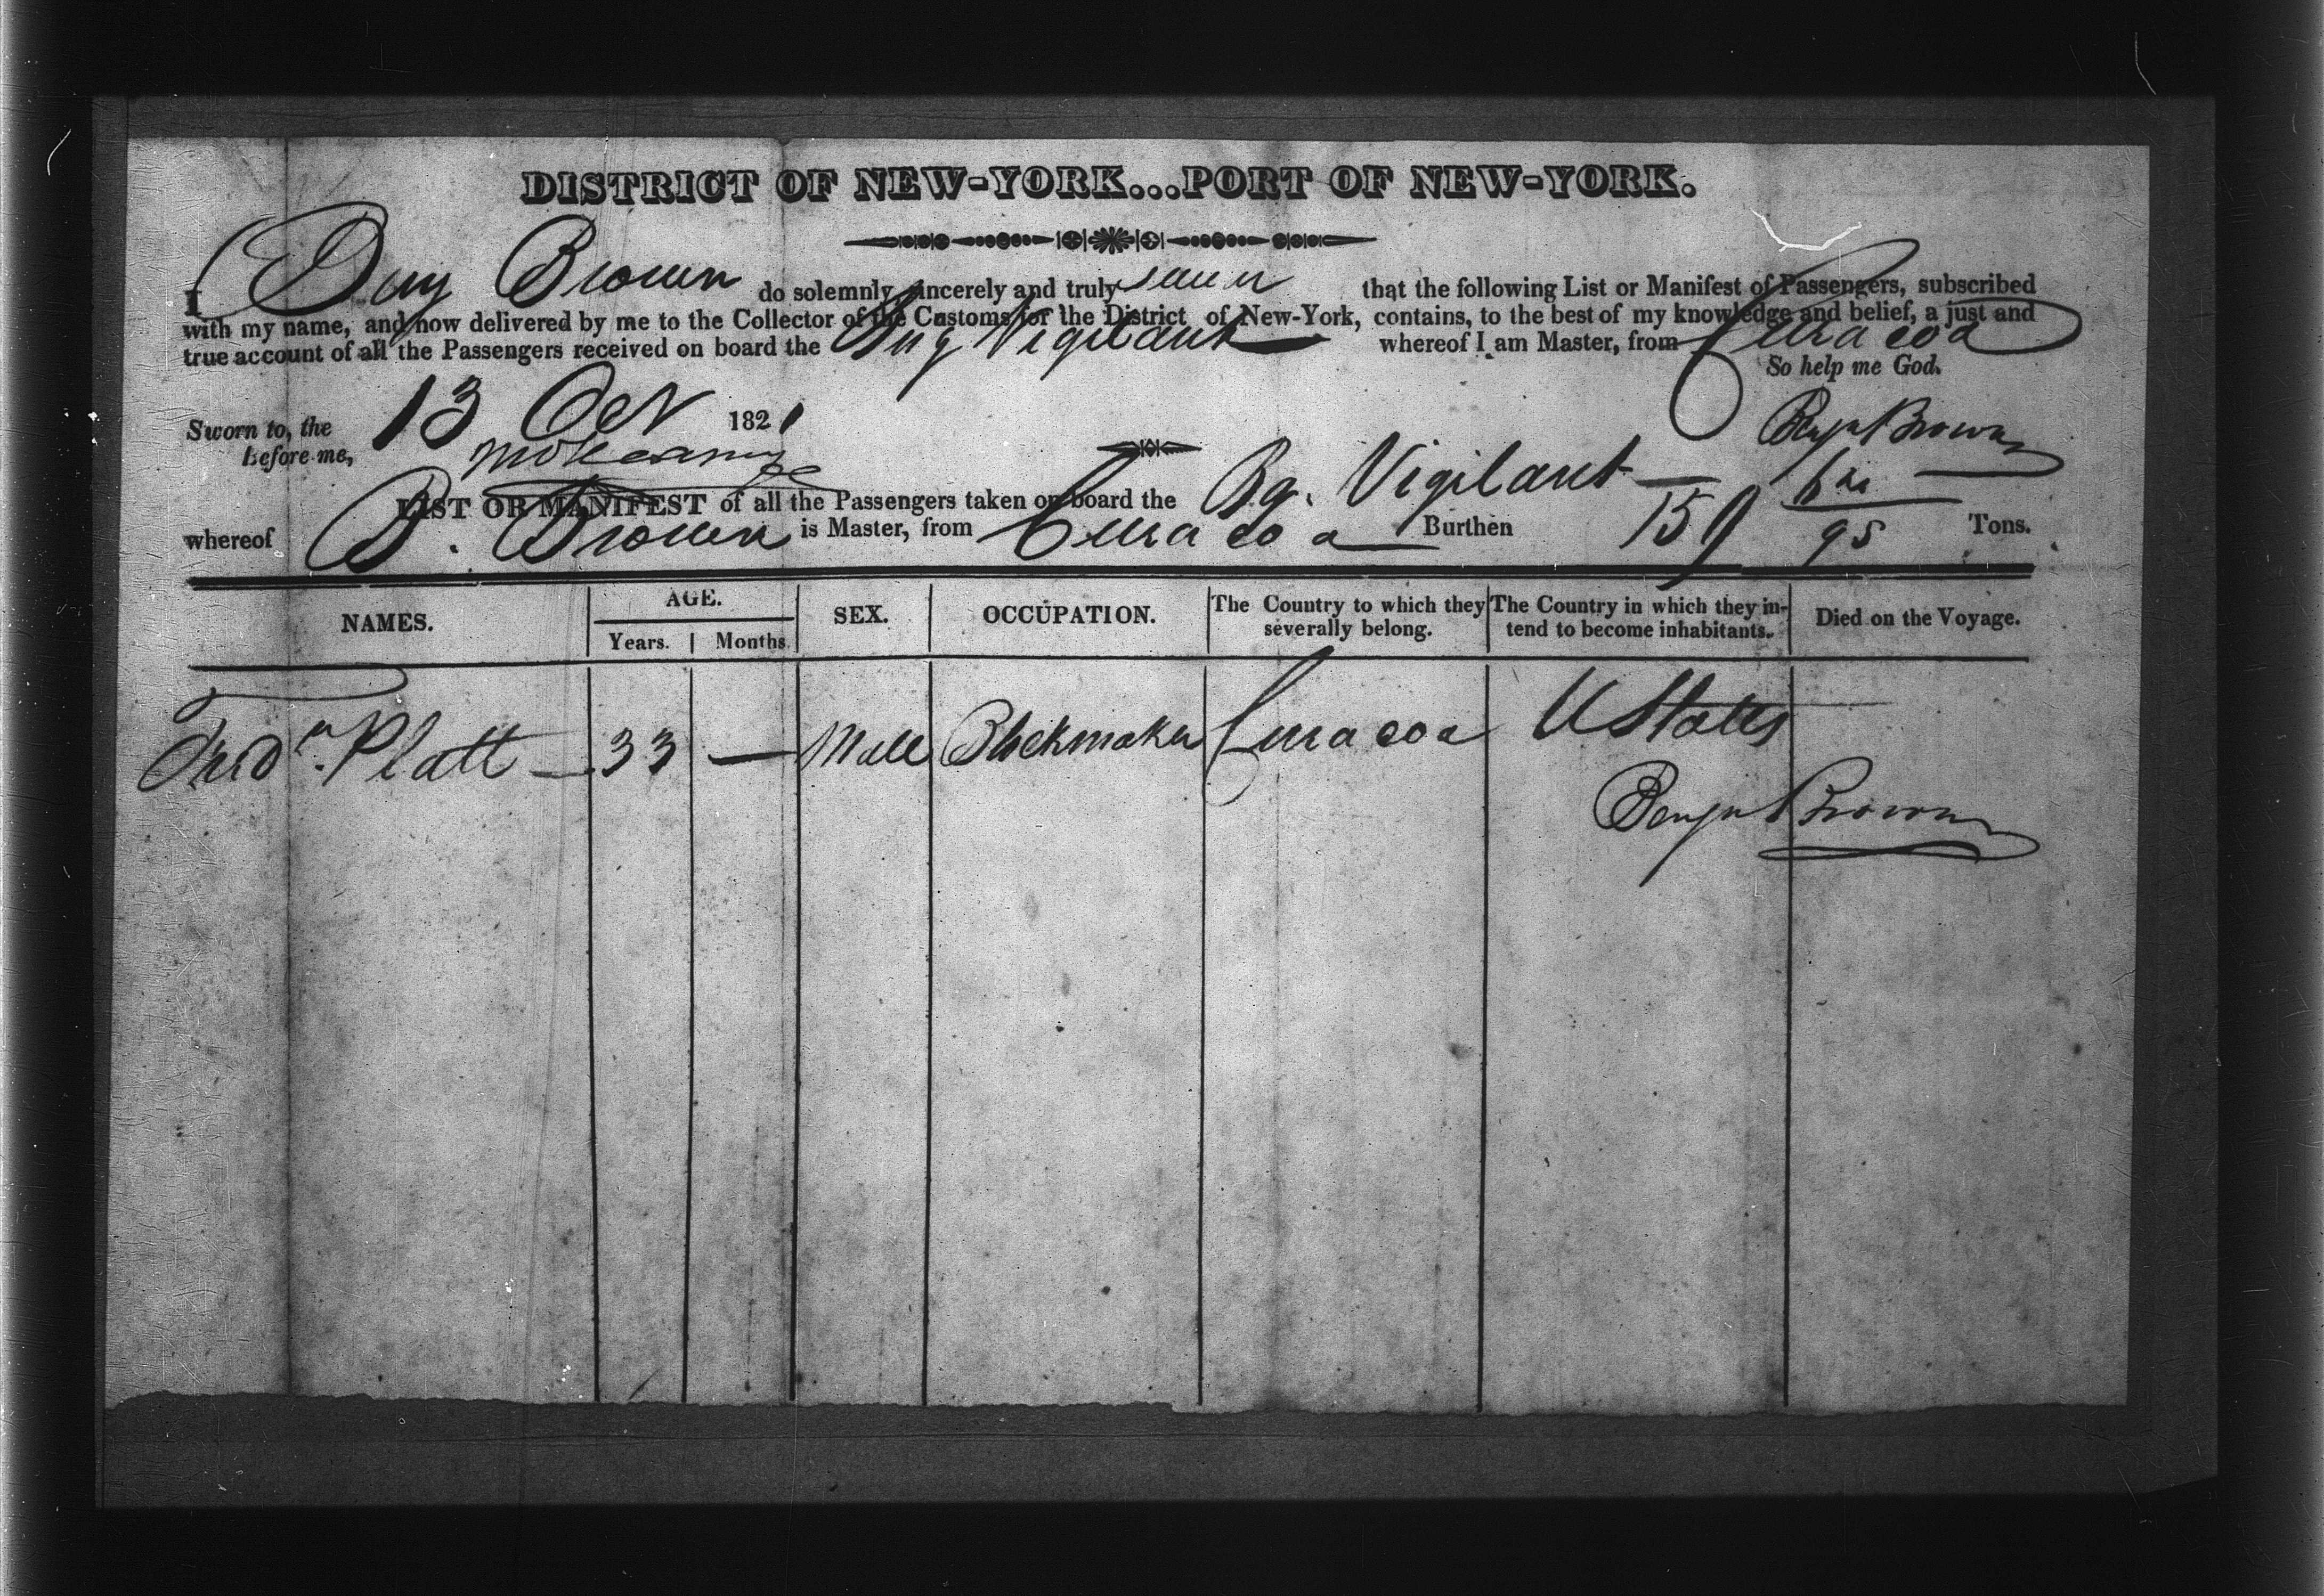 DISTRICT OF NEW-YORK...PORT OF NEW-YORK.
I Benj Brown do solemnly, sincerely and truly swear that the following List or Manifest of Passengers, subscribed
with my name, and now delivered by me to the Collector of the Customs for the District of New-York, contains, to the best of my knowledge and belief, a just and
true account of all the Passengers received on board the Brig Vigilant whereof I am Master, from Curacoa
So help me God.
Sworn to, the 13 Oct 1821
Before me, Benjn Brown
LIST OR MANIFEST of all the Passengers taken on board the Bg. Vigilant
whereof B. Brown is Master, from Curacoa Burthen 159 /95 Tons.
NAMES. AGE. SEX. OCCUPATION. The Country to which they severally belong. The Country in which they intend to become inhabitants. Died on the Voyage.
Years. Months.
Fredk. Platt — 33 — Male Blockmaker Curacoa U States
Benjn Brown